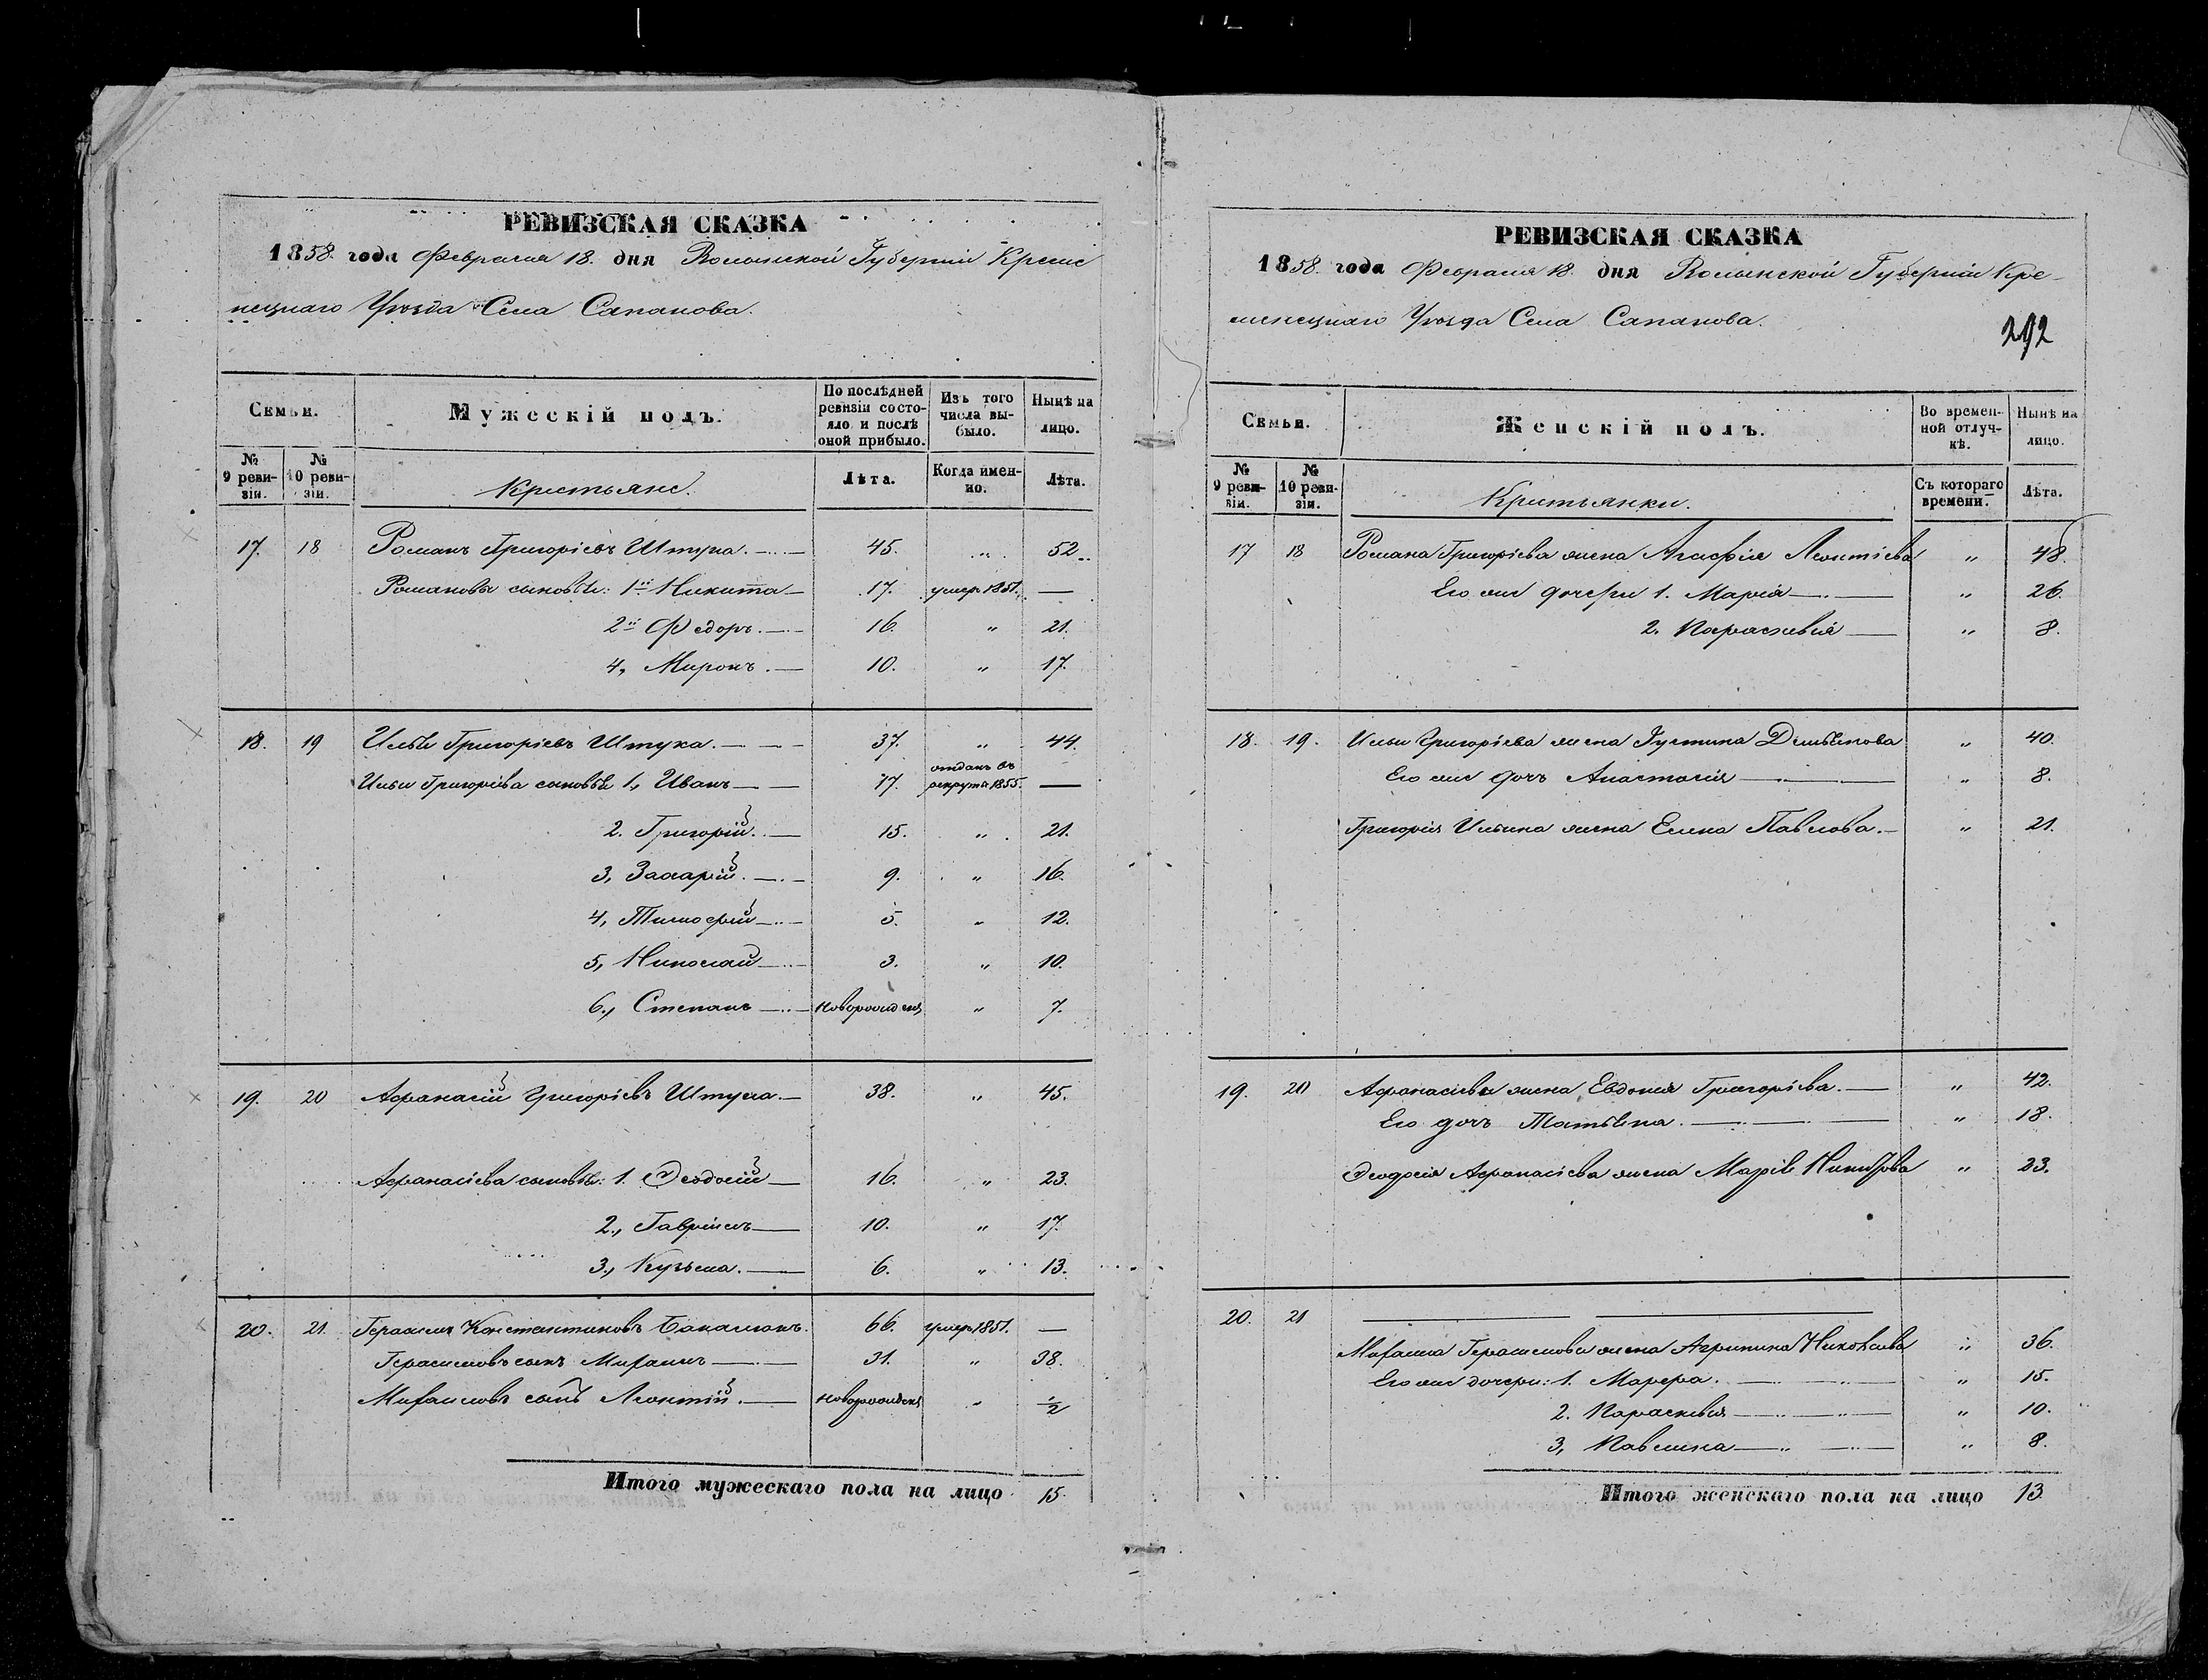 РЕВИЗСКАЯ СКАЗКА
1858. года Февраля 18. дня Волынской Губернiи Креме
нецкаго Уѣзда Села Сапанова.
Семьи.
Мужескiй полъ.
По послѣдней ревизiи состояло и послѣ оной прибыло.
Изъ того числа выбыло.
Нынѣ на лицо.
№ 9 ревизiи.
№ 10 ревизiи.
Крестьяне.
Лѣта.
Когда именно.
Лѣта.
17. 18 Романъ Григорiевъ Штука. 45. „ 52.
Романовы сыновья: 1й Никита 17. умер. 1851. —
2й Федоръ. 16. „ 21.
4, Миронъ. 10. „ 17.
18. 19 Илья Григорiевъ Штука. 37. „ 44.
Ильи Григорiева сыновья 1, Иванъ 17. отданъ въ рекруты 1855. —
2. Григорiй. 15. „ 21.
3, Захарiй. 9. „ 16.
4, Тимофей 5. „ 12.
5, Николай 3. „ 10.
6., Степанъ новорожден, „ 7.
19. 20 Афанасiй Григорiевъ Штука. 38. „ 45.
Афанасiева сыновья: 1. Феодосiй 16. „ 23.
2., Гаврiилъ 10. „ 17.
3., Кузьма. 6. „ 13.
20. 21. Герасимъ Константиновъ 66. умеръ 1851. —
Герасимовъ сынъ Михаилъ 31. „ 38.
Михаиловъ сынъ Леонтiй. новорожден „ 1/2
Итого мужескаго пола на лицо 15.
РЕВИЗСКАЯ СКАЗКА
1858. года Февраля 18. дня Волынской Губернiи Кре-
менецкаго Уѣзда Села Сапанова.
292
Семьи.
Женскiй полъ.
Во временной отлучкѣ.
Нынѣ на лицо.
№ 9 ревизiи.
№ 10 ревизiи.
Крестьянки.
Съ котораго времени.
Лѣта.
17 18 Романа Григорiева жена Агафiя Леонтiева „ 48.
Его же дочери 1. Марiя „ 26.
2. Параскевiя „ 8.
18. 19. Ильи Григорiева жена Iустина Демьянова „ 40.
Его же дочь Анастасiя „ 8.
Григорiя Ильина жена Елена Павлова. „ 21.
19. 20 Афанасiева жена Евдокiя Григорiева. „ 42.
Его дочь Татьяна. „ 18.
Феодосiя Афанасiева жена Марiя „ 23.
20. 21
Михаила Герасимова жена Агрипина Николаева „ 36.
Его же дочери: 1. Марфа. „ 15.
2. Параскевiя „ 10.
3, Павлина „ 8.
Итого женскаго пола на лицо 13.